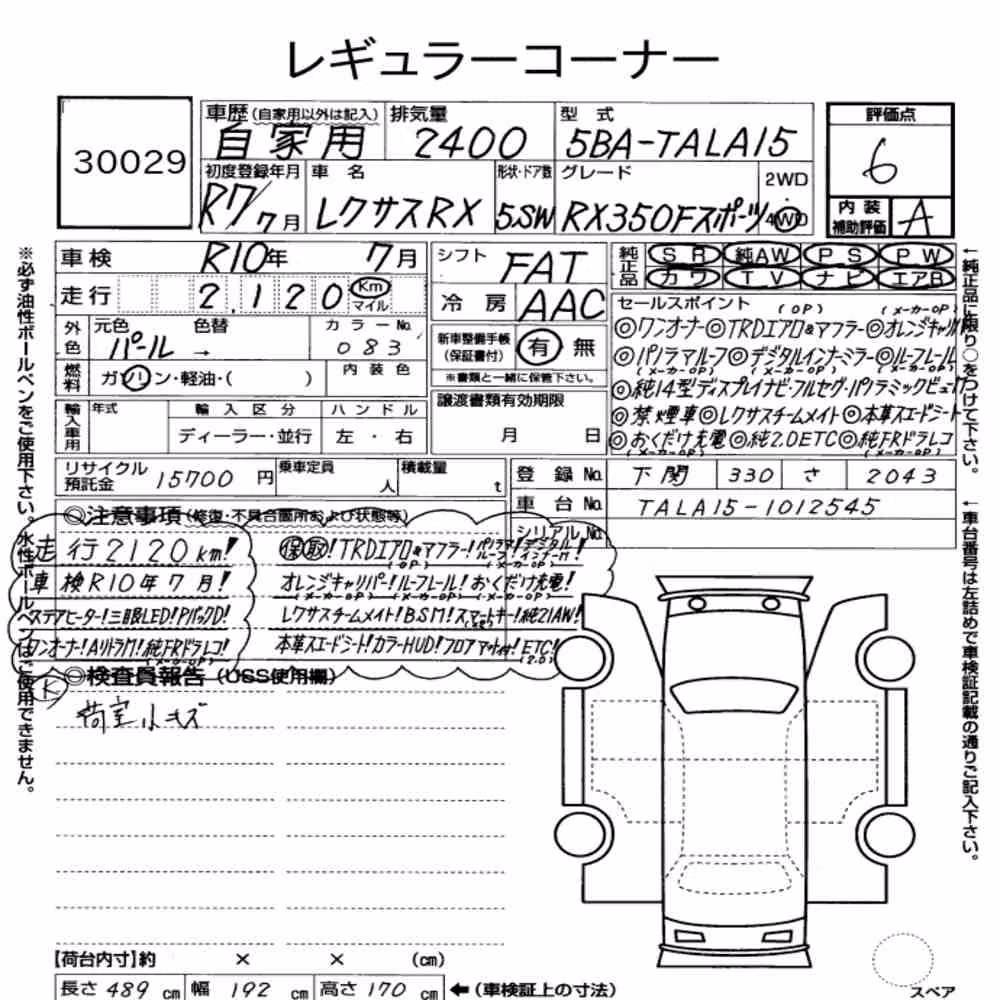 レギュラーコーナー
30029
車歴(自家用以外は記入) 自家用
排気量 2400
型式 5BA-TALA15
評価点 6
初度登録年月 R7/7月
車名 レクサスRX
形状・ドア数 5.SW
グレード RX350Fスポーツ
2WD
4WD
内装補助評価 A
車検 R10年 7月
シフト FAT
純正品 SR 純AW PS PW
カワ TV ナビ エアB
走行 2,120 Km マイル
冷房 AAC
セールスポイント (OP) (メーカーOP)
◎ワンオーナー◎TRDエアロ&マフラー◎オレンジキャリパー
外色 元色 パール 色替 →
カラーNo. 083
新車整備手帳(保証書付) 有 無
◎パノラマルーフ◎デジタルインナーミラー◎ルーフレール
(メーカーOP) (メーカーOP) (メーカーOP)
燃料 ガソリン・軽油・( )
内装色
※書類と一緒に保管下さい。
◎純14型ディスプレイナビ・フルセグ・パノラミックビュー
輸入車用 年式 輸入区分 ハンドル
ディーラー・並行 左・右
譲渡書類有効期限
月 日
◎禁煙車◎レクサスチームメイト◎本革スエードシート
◎おくだけ充電◎純2.0ETC◎純FRドラレコ
(メーカーOP) (メーカーOP)
リサイクル預託金 15700円
乗車定員 人
積載量 t
登録No. 下関 330 さ 2043
車台No. TALA15-1012545
シリアルNo.
◎注意事項(修復・不具合箇所および状態等)
走行2120km!
保取!TRDエアロ&マフラー!パノラマルーフ!デジタルインナーM!
(OP) (メーカーOP) (メーカーOP)
車検R10年7月!
オレンジキャリパー!ルーフレール!おくだけ充電!
(メーカーOP) (メーカーOP) (メーカーOP)
ステアヒーター!三眼LED!PバックD!
レクサスチームメイト!BSM!スマートキー!純21AW!
ワンオーナー!AハイドラM!純FRドラレコ!
(メーカーOP)
本革スエードシート!カラーHUD!フロアマット付!ETC!
(2.0)
◎検査員報告(USS使用欄)
荷室小キズ
【荷台内寸】約 × × (cm)
長さ 489 cm 幅 192 cm 高さ 170 cm ←(車検証上の寸法)
スペア
※必ず油性ボールペンをご使用下さい。水性ボールペンはご使用できません。
←純正品に限り○をつけて下さい。
←車台番号は左詰めで車検証記載の通りご記入下さい。